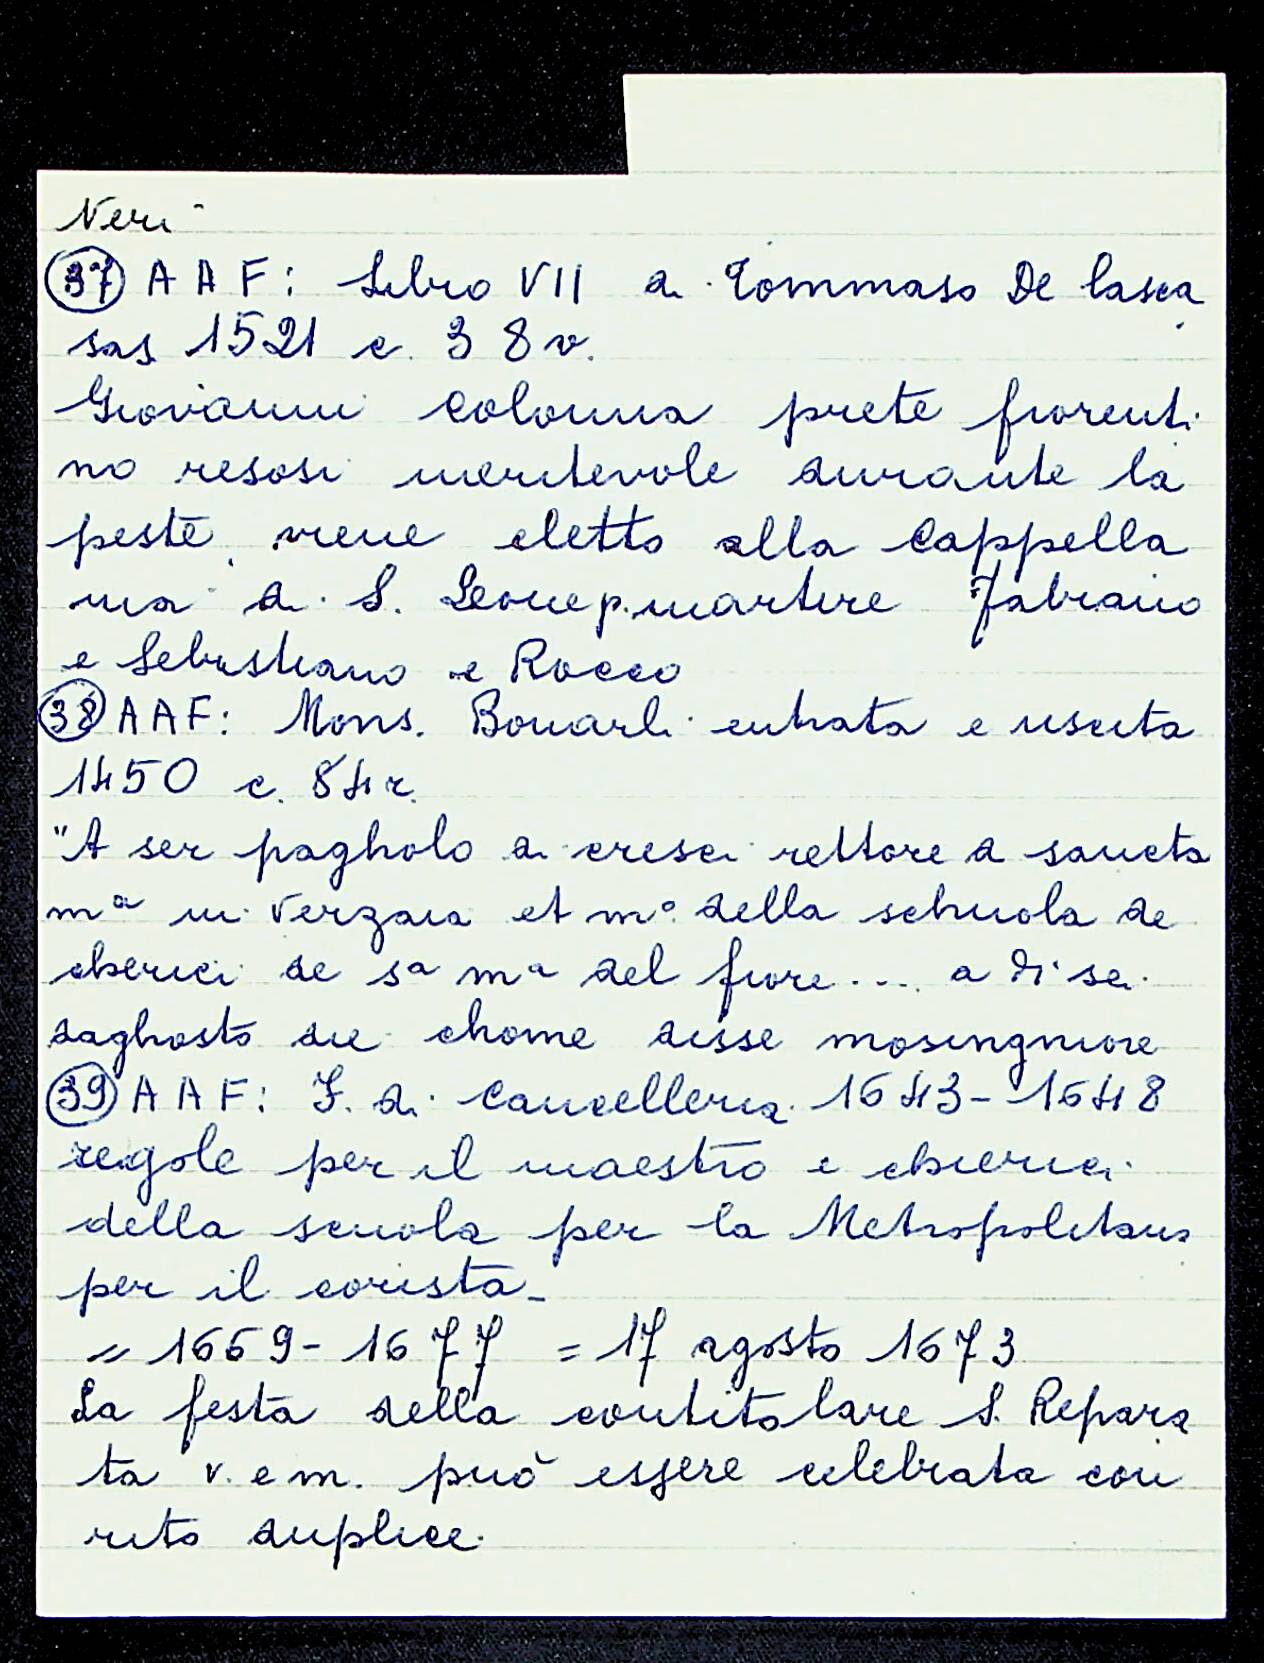 Neri -
37 A A F: Libro VII di Tommaso De Casca
sas 1521 c. 38v.
Giovanni colonna prete fiorenti
no resosi meritevole durante la
peste, viene eletto alla Cappella
nia di S. Leone p. martire Fabiano
e Sebastiano e Rocco
38 A A F: Mons. Bonarli entrata e uscita
1450 c. 84r.
"A ser pagholo di cresci rettore a sancta
mª in Verzaia et mº della schuola de
cherici de sª mª del fiore .... a dì sei
daghosto die chome disse mosingniore
39 A A F: F. di Cancelleria 1643-1648
regole per il maestro e chierici
della scuola per la Metropolitana
per il corista -
= 1669-1677 = 17 agosto 1673
La festa della contitolare S. Repara
ta v. e m. può essere celebrata con
rito duplice.